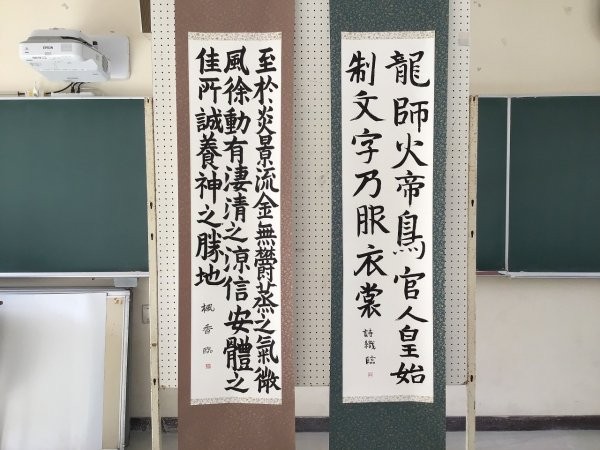 龍師火帝鳥官人皇始
制文字乃服衣裳
詩織臨
至於炎景流金無欝蒸之氣微
風徐動有淒清之涼信安體之
佳所誠養神之勝地
楓香臨
EPSON